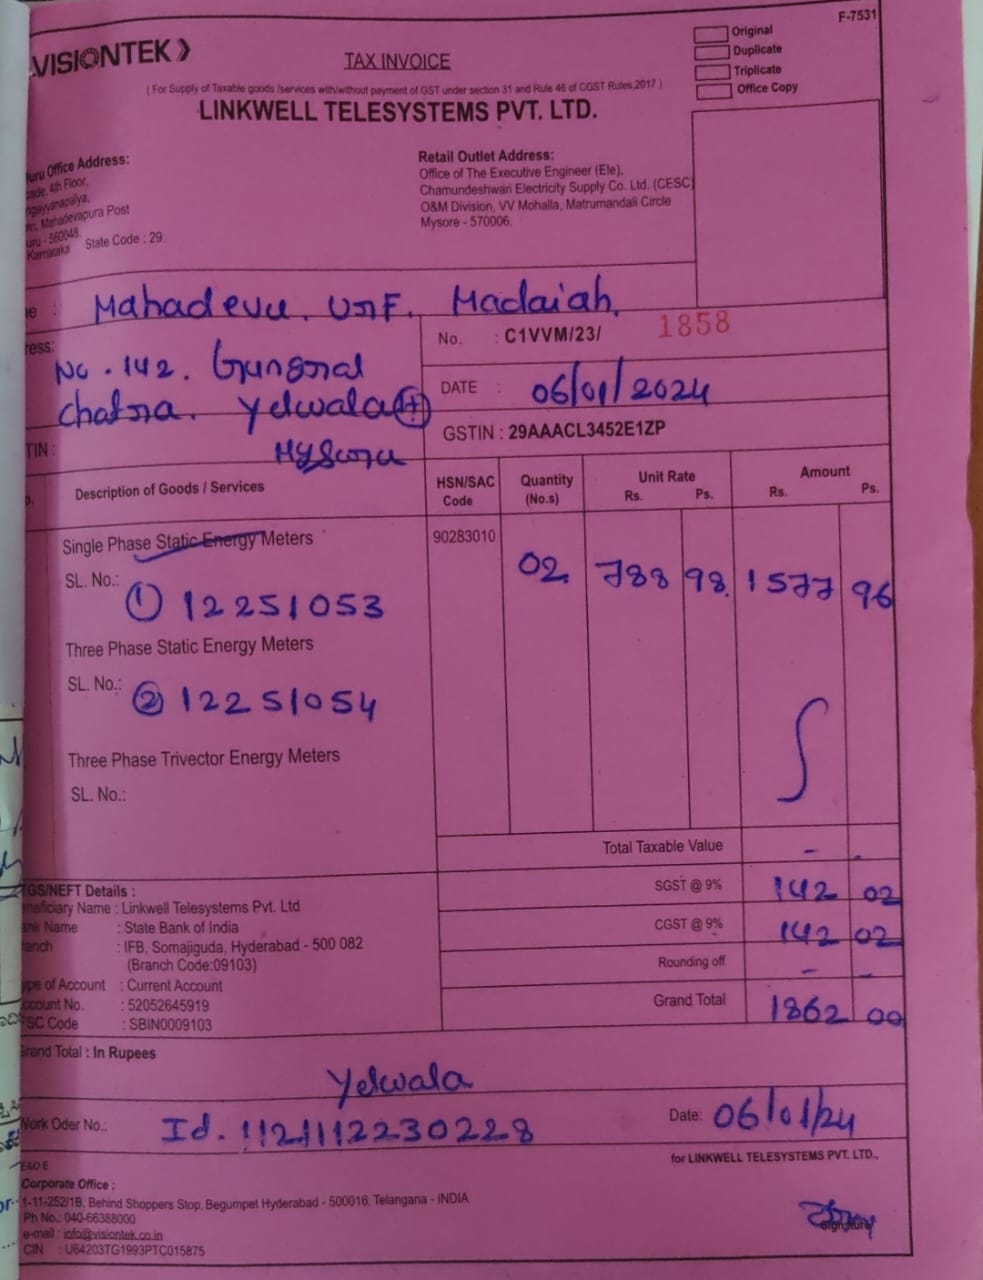 VISIONTEK
F-7531
Original
Duplicate
Triplicate
Office Copy
TAX INVOICE
( For Supply of Taxable goods /services with/without payment of GST under section 31 and Rule 46 of CGST Rules,2017 )
LINKWELL TELESYSTEMS PVT. LTD.
uru Office Address:
4th Floor,
Mahadevapura Post
560048.
Karnataka State Code : 29.
Retail Outlet Address:
Office of The Executive Engineer (Ele),
Chamundeshwari Electricity Supply Co. Ltd. (CESC)
O&M Division, VV Mohalla, Matrumandali Circle
Mysore - 570006.
Mahadevu. Madaiah.
ress:
No. 142.
Yelwala (H)
No. : C1VVM/23/ 1858
DATE : 06/01/2024
GSTIN : 29AAACL3452E1ZP
TIN :
Description of Goods / Services
HSN/SAC Code
Quantity (No.s)
Unit Rate Rs. Ps.
Amount Rs. Ps.
Single Phase Static Energy Meters
90283010
02. 788 98. 1577 96
SL. No.:
① 12251053
Three Phase Static Energy Meters
SL. No.:
② 12251054
Three Phase Trivector Energy Meters
SL. No.:
Total Taxable Value - .
SGST @ 9% 142 02
CGST @ 9% 142 02
Rounding off - -
Grand Total 1862 00
GS/NEFT Details :
neficiary Name : Linkwell Telesystems Pvt. Ltd
ank Name : State Bank of India
ranch : IFB, Somajiguda, Hyderabad - 500 082
(Branch Code:09103)
ype of Account : Current Account
ccount No. : 52052645919
SC Code : SBIN0009103
Grand Total : In Rupees
Yelwala
Work Oder No.: Id. 1121112230228
Date: 06/01/24
for LINKWELL TELESYSTEMS PVT. LTD.,
E&O E
Corporate Office :
1-11-252/1B, Behind Shoppers Stop, Begumpet Hyderabad - 500016, Telangana - INDIA
Ph No.: 040-66388000
e-mail : info@visiontek.co.in
CIN : U64203TG1993PTC015875
Signature